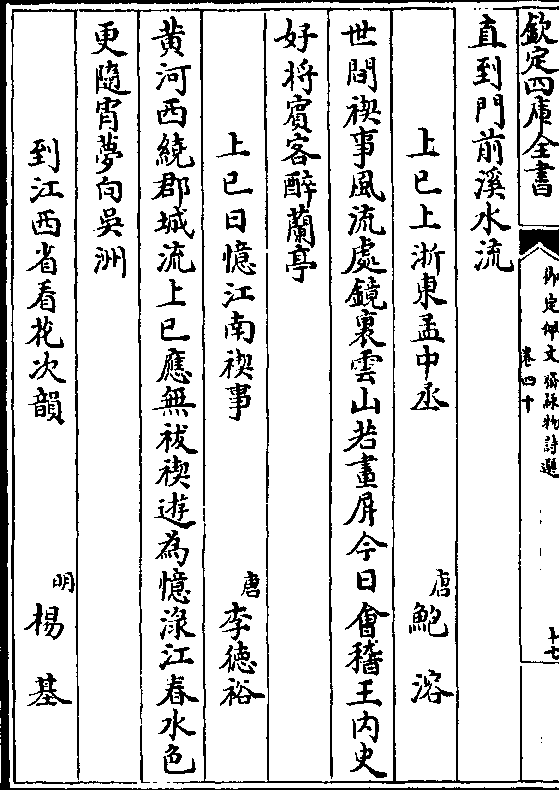 欽定四庫全書
御定佩文齋詠物詩選
卷四十
十七
直到門前溪水流
上巳上浙東孟中丞
唐 鮑溶
世間禊事風流處鏡裏雲山若畫屏今日會稽王內史
好將賓客醉蘭亭
上巳日憶江南禊事
唐 李德裕
黄河西繞郡城流上巳應無祓禊遊為憶渌江春水色
更隨宵夢向吳洲
到江西省看花次韻
明 楊基